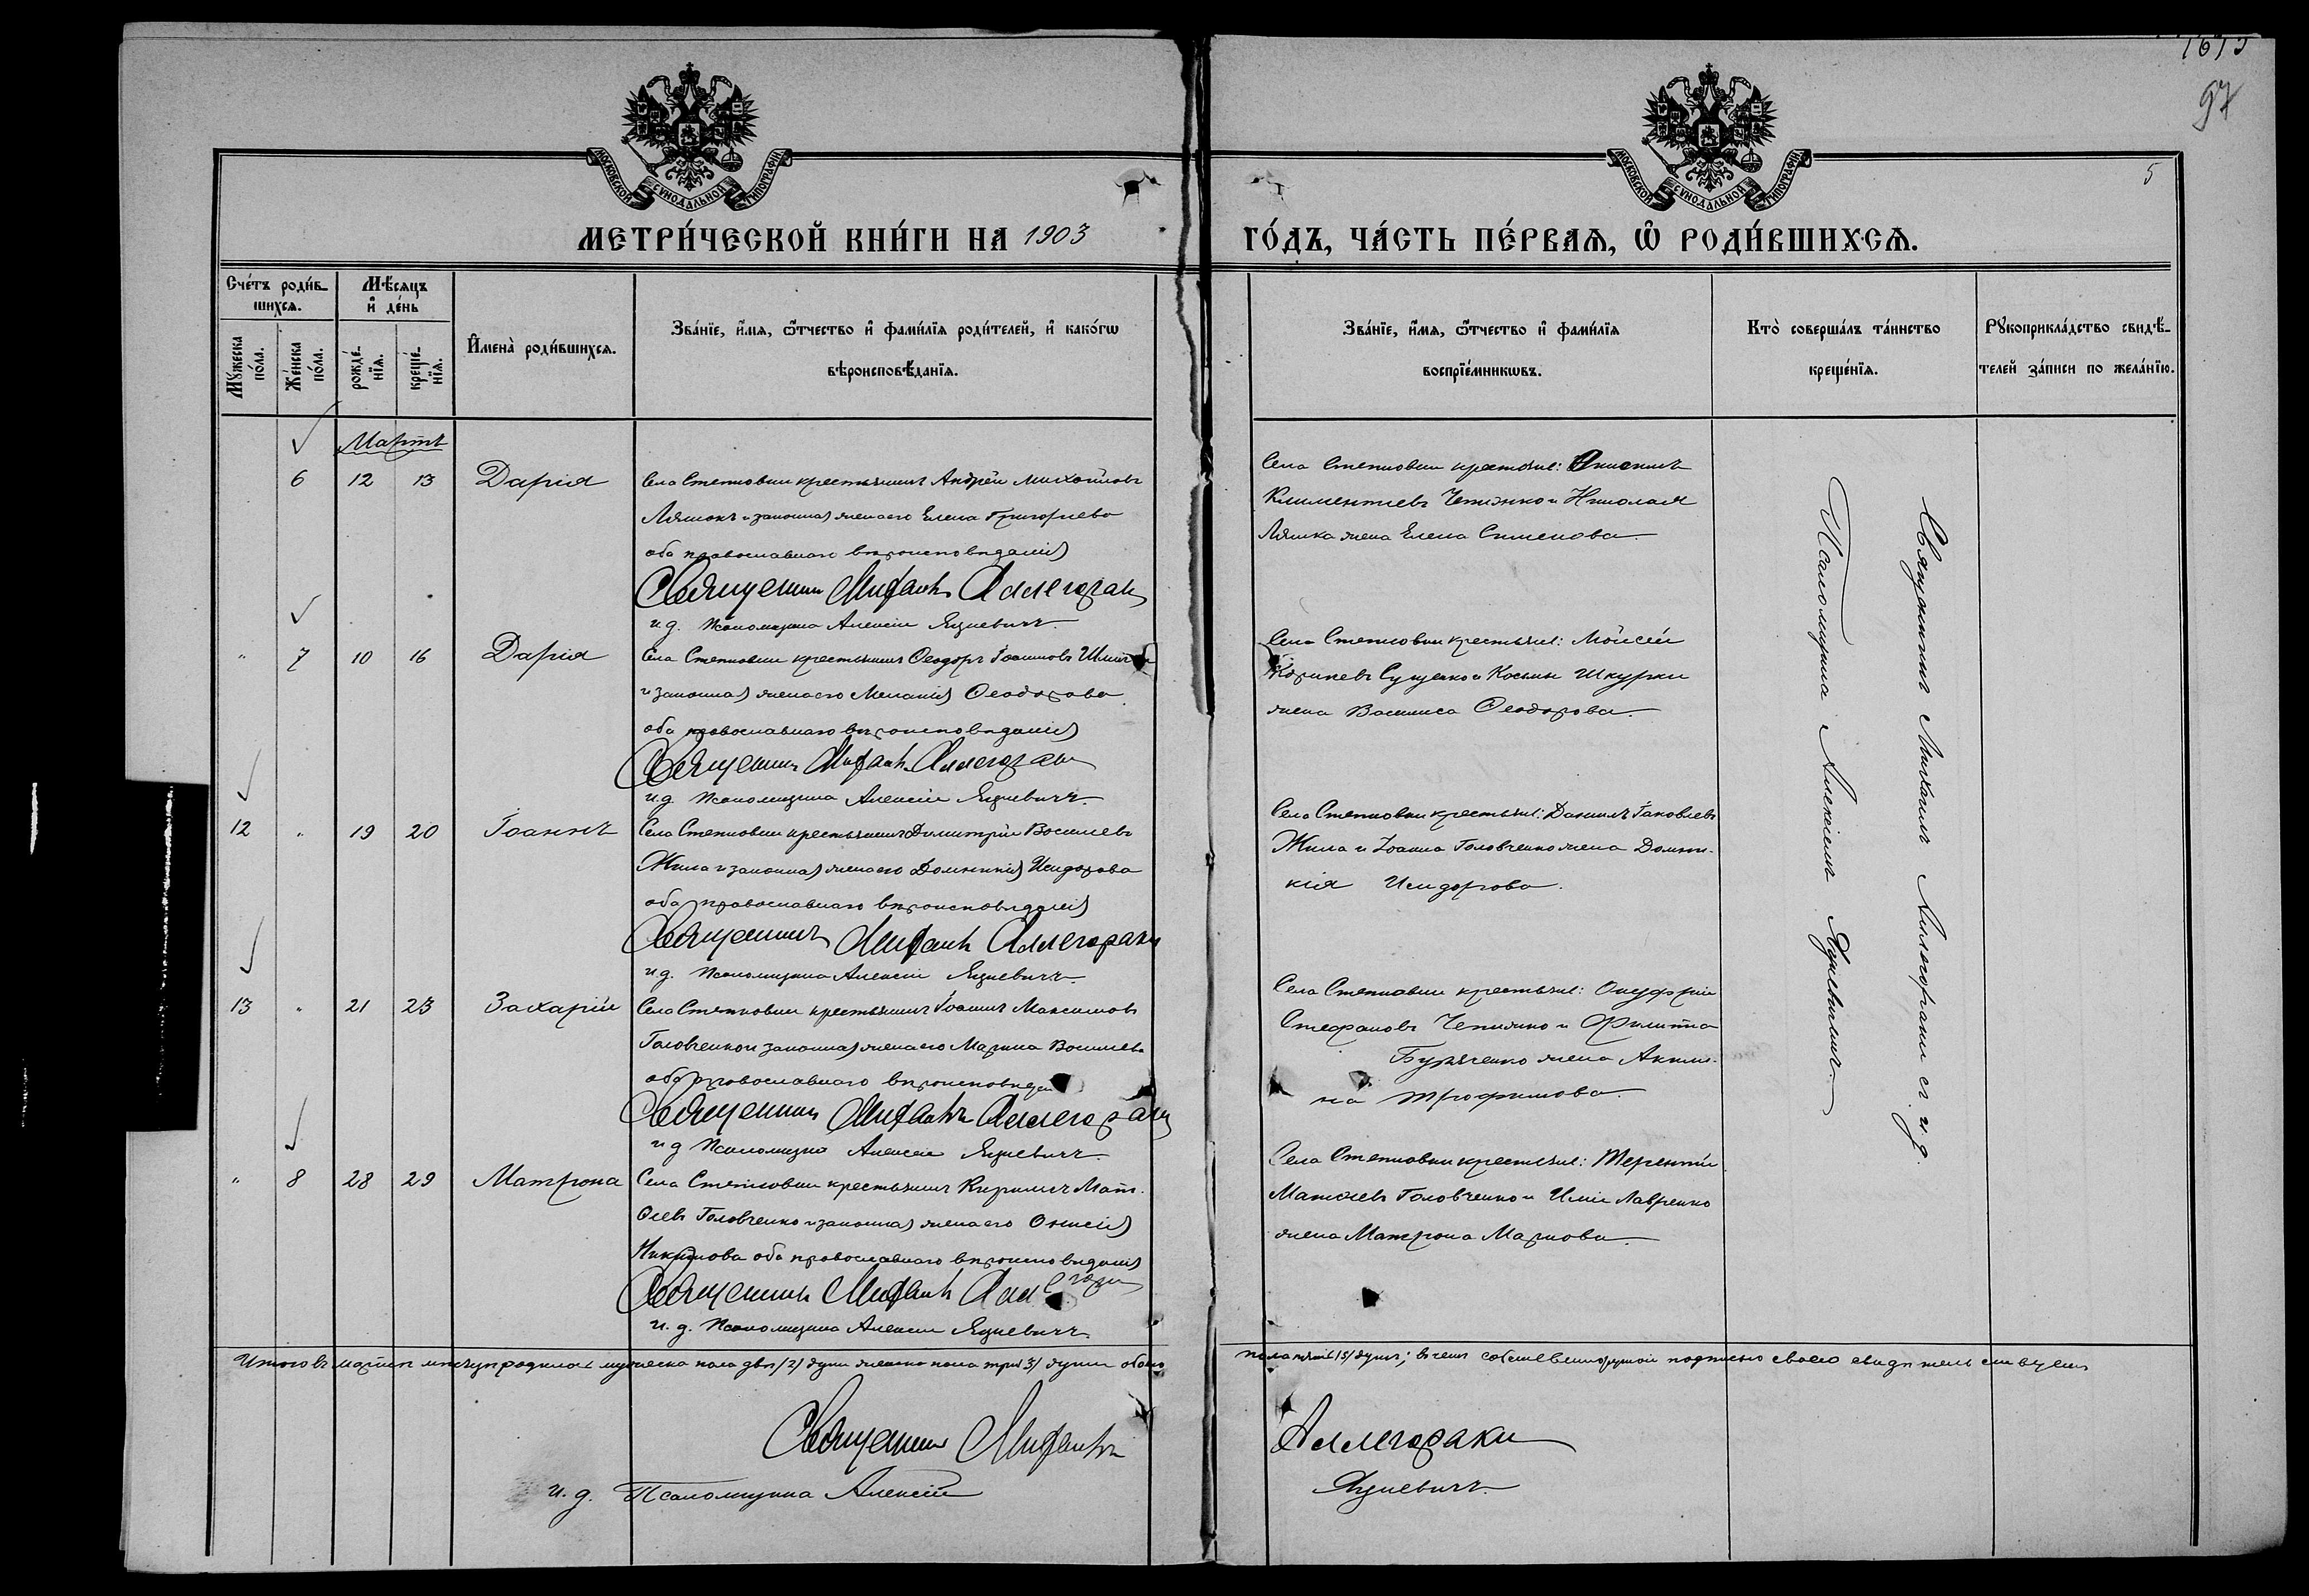 1615
97
5
МОСКОВСКОЙ СѴНОДАЛЬНОЙ ТИПОГРАФІИ
МОСКОВСКОЙ СѴНОДАЛЬНОЙ ТИПОГРАФІИ
МЕТРИ́ЧЕСКОЙ КНИ́ГИ НА 1903 ГО́ДЪ, ЧА́СТЬ ПЕ́РВАЯ, Ѡ҆ РОДИ́ВШИХСЯ.
Сче́тъ роди́в-
шихся.
Мѣ́сяцъ
и҆ де́нь
Мꙋ́жеска по́ла.
Же́нска по́ла.
рожде́-
нїя.
креще́-
нїя.
И҆мена̀ роди́вшихся.
Зва́нїе, и҆́мя, ѻ҆́тчество и҆ фами́лїя роди́телей, и҆ како́гѡ
вѣроисповѣ́данїя.
Зва́нїе, и҆́мя, ѻ҆́тчество и҆ фами́лїя
воспрїе́мникѡвъ.
Кто̀ соверша́лъ та́инство
креще́нїя.
Рꙋкоприкла́дство свидѣ́-
телей за́писи по жела́нїю.
Мартъ
6 12 13 Дарія
Села Степковки крестьянинъ Андрей Михайловъ
Ляшокъ и законная жена его Елена Григорьева
оба православнаго вѣроисповѣданія
Священникъ Михаилъ Аллегораки
и. д. Псаломщика Алексій Яцкевичъ.
Села Степковки крестьяне:
Климентіевъ Чепижко и Николая
Ляшка жена Елена Симеонова
" 7 10 16 Дарія
Села Степковки крестьянинъ Ѳеодоръ Іоанновъ
и законная жена его Меланія Ѳеодорова
оба православнаго вѣроисповѣданія
Священникъ Михаилъ Аллегораки
и. д. Псаломщика Алексій Яцкевичъ.
Села Степковки крестьяне: Моисей
Сущенко и Косьмы Шкурки
жена Василиса Ѳеодорова.
12 " 19 20 Іоаннъ
Села Степковки крестьянинъ Димитрій Васильевъ
Жила и законная жена его Домникія Исидорова
оба православнаго вѣроисповѣданія
Священникъ Михаилъ Аллегораки
и. д. Псаломщика Алексій Яцкевичъ.
Села Степковки крестьяне: Даніилъ Іаковлевъ
Жила и Іоанна Головченко жена Домни-
кія Исидорова.
13 " 21 23 Захарій
Села Степковки крестьянинъ Іоаннъ Максимовъ
Головченко и законная жена его Марина Васильева
оба православнаго вѣроисповѣдан
Священникъ Михаилъ Аллегораки
и. д. Псаломщика Алексій Яцкевичъ.
Села Степковки крестьяне: Онуфрій
Стефановъ Чепижко и Филиппа
Буряченко жена Акили-
на Трофимова.
" 8 28 29 Матрона
Села Степковки крестьянинъ Кириллъ Мат-
ѳіевъ Головченко и законная жена его Онисія
оба православнаго вѣроисповѣданія
Священникъ Михаилъ Аллегораки
и. д. Псаломщика Алексій Яцкевичъ.
Села Степковки крестьяне: Терентій
Матѳіевъ Головченко и Иліи Лавренко
жена Матрона Маркова.
Священникъ Михаилъ Аллегораки съ и. д.
Псаломщика Алексіемъ Яцкевичемъ.
Итого въ мартѣ мѣсяцѣ родилось мужеска пола двѣ /2/ души женска пола три /3/ души обоего пола пять /5/ душъ; въ чемъ собственноручною подписью своею свидѣтельствуемъ
Священникъ Михаилъ Аллегораки
и. д. Псаломщика Алексій Яцкевичъ.